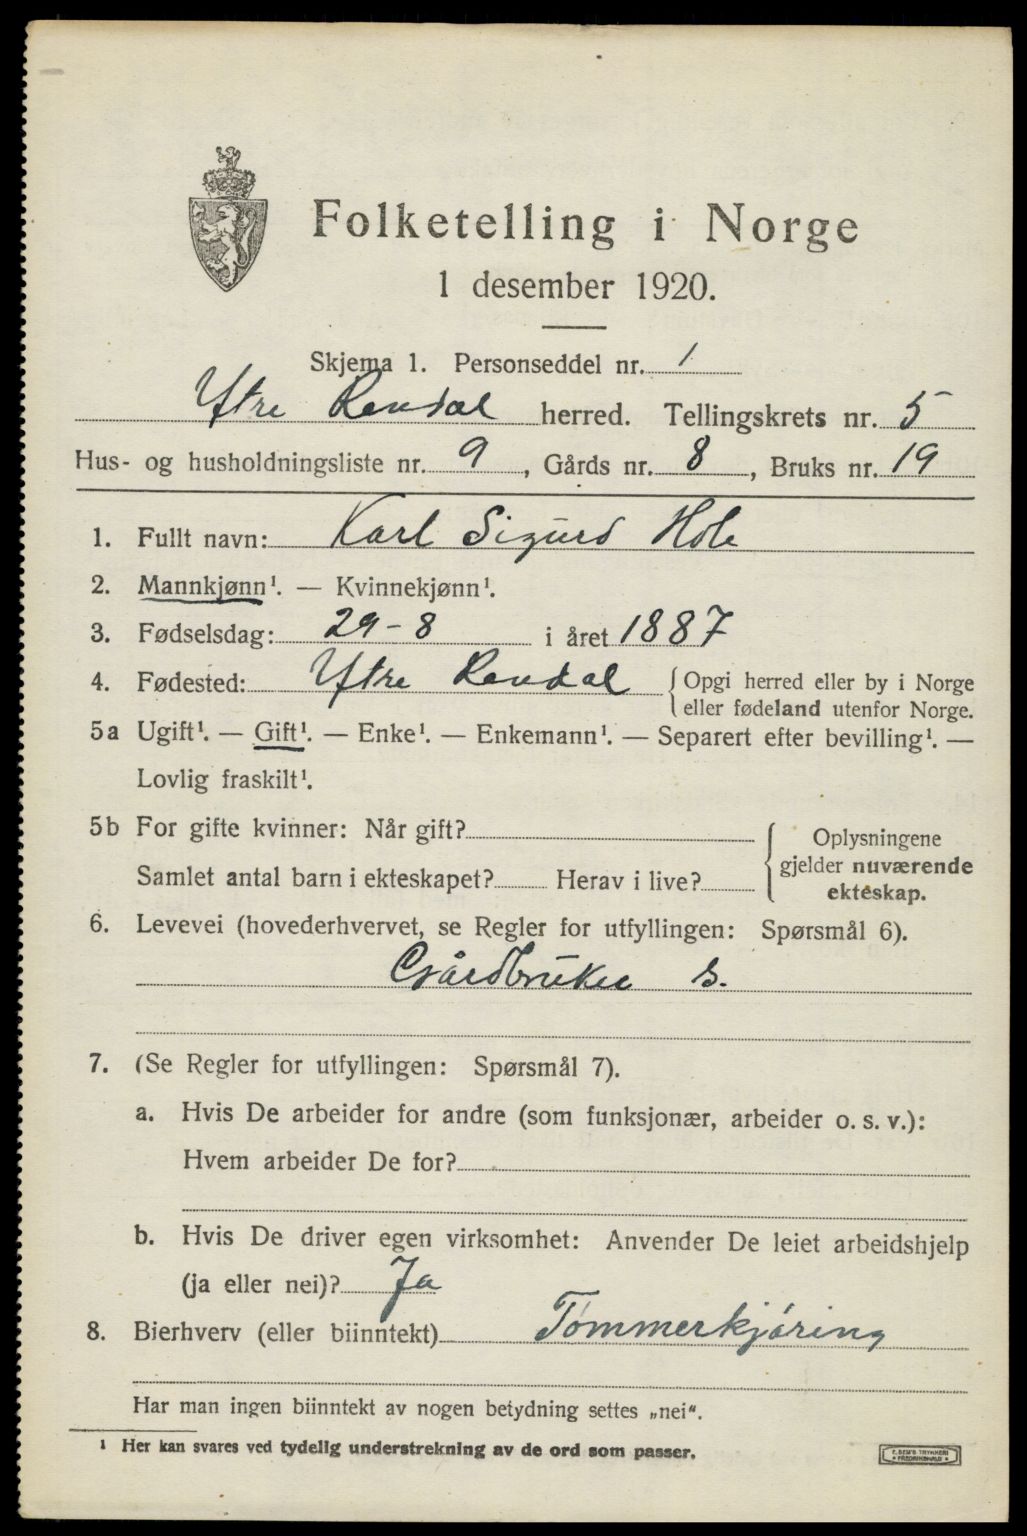 Folketelling i Norge
1 desember 1920.
Skjema 1. Personseddel nr. 1
Ytre Rendal herred. Tellingskrets nr. 5
Hus- og husholdningsliste nr. 9, Gårds nr. 8, Bruks nr. 19
1. Fullt navn: Karl Sigurd Hole
2. Mannkjønn¹. — Kvinnekjønn¹.
3. Fødselsdag: 29-8 i året 1887
4. Fødested: Ytre Rendal { Opgi herred eller by i Norge
eller fødeland utenfor Norge.
5a Ugift¹. — Gift¹. — Enke¹. — Enkemann¹. — Separert efter bevilling¹. —
Lovlig fraskilt¹.
5b For gifte kvinner: Når gift?
Samlet antal barn i ekteskapet? Herav i live?
Oplysningene
gjelder nuværende
ekteskap.
6. Levevei (hovederhvervet, se Regler for utfyllingen: Spørsmål 6).
Gårdbruker s.
7. (Se Regler for utfyllingen: Spørsmål 7).
a. Hvis De arbeider for andre (som funksjonær, arbeider o. s. v.):
Hvem arbeider De for?
b. Hvis De driver egen virksomhet: Anvender De leiet arbeidshjelp
(ja eller nei)? Ja
8. Bierhverv (eller biinntekt) Tømmerkjøring
Har man ingen biinntekt av nogen betydning settes „nei“.
¹ Her kan svares ved tydelig understrekning av de ord som passer.
E. SEM'S TRYKKERI
FREDRIKSHALD